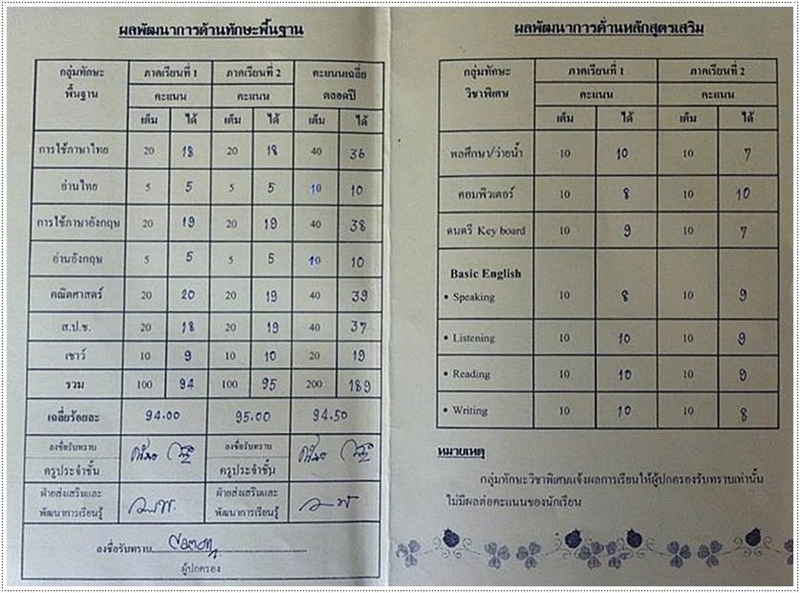 ผลพัฒนาการด้านทักษะพื้นฐาน
กลุ่มทักษะพื้นฐาน ภาคเรียนที่ 1 ภาคเรียนที่ 2 คะแนนเฉลี่ยตลอดปี
คะแนน คะแนน
เต็ม ได้ เต็ม ได้ เต็ม ได้
การใช้ภาษาไทย 20 18 20 18 40 36
อ่านไทย 5 5 5 5 10 10
การใช้ภาษาอังกฤษ 20 19 20 19 40 38
อ่านอังกฤษ 5 5 5 5 10 10
คณิตศาสตร์ 20 20 20 19 40 39
ส.ป.ช. 20 18 20 19 40 37
เชาว์ 10 9 10 10 20 19
รวม 100 94 100 95 200 189
เฉลี่ยร้อยละ 94.00 95.00 94.50
ลงชื่อรับทราบ ลงชื่อรับทราบ
ครูประจำชั้น ครูประจำชั้น
ฝ่ายส่งเสริมและ ฝ่ายส่งเสริมและ
พัฒนาการเรียนรู้ พัฒนาการเรียนรู้
ลงชื่อรับทราบ
ผู้ปกครอง
ผลพัฒนาการด้านหลักสูตรเสริม
กลุ่มทักษะ ภาคเรียนที่ 1 ภาคเรียนที่ 2
วิชาพิเศษ คะแนน คะแนน
เต็ม ได้ เต็ม ได้
พลศึกษา/ว่ายน้ำ 10 10 10 7
คอมพิวเตอร์ 10 8 10 10
ดนตรี Key board 10 9 10 7
Basic English
• Speaking 10 8 10 9
• Listening 10 10 10 9
• Reading 10 10 10 9
• Writing 10 10 10 8
หมายเหตุ
กลุ่มทักษะวิชาพิเศษแจ้งผลการเรียนให้ผู้ปกครองรับทราบเท่านั้น
ไม่มีผลต่อคะแนนของนักเรียน